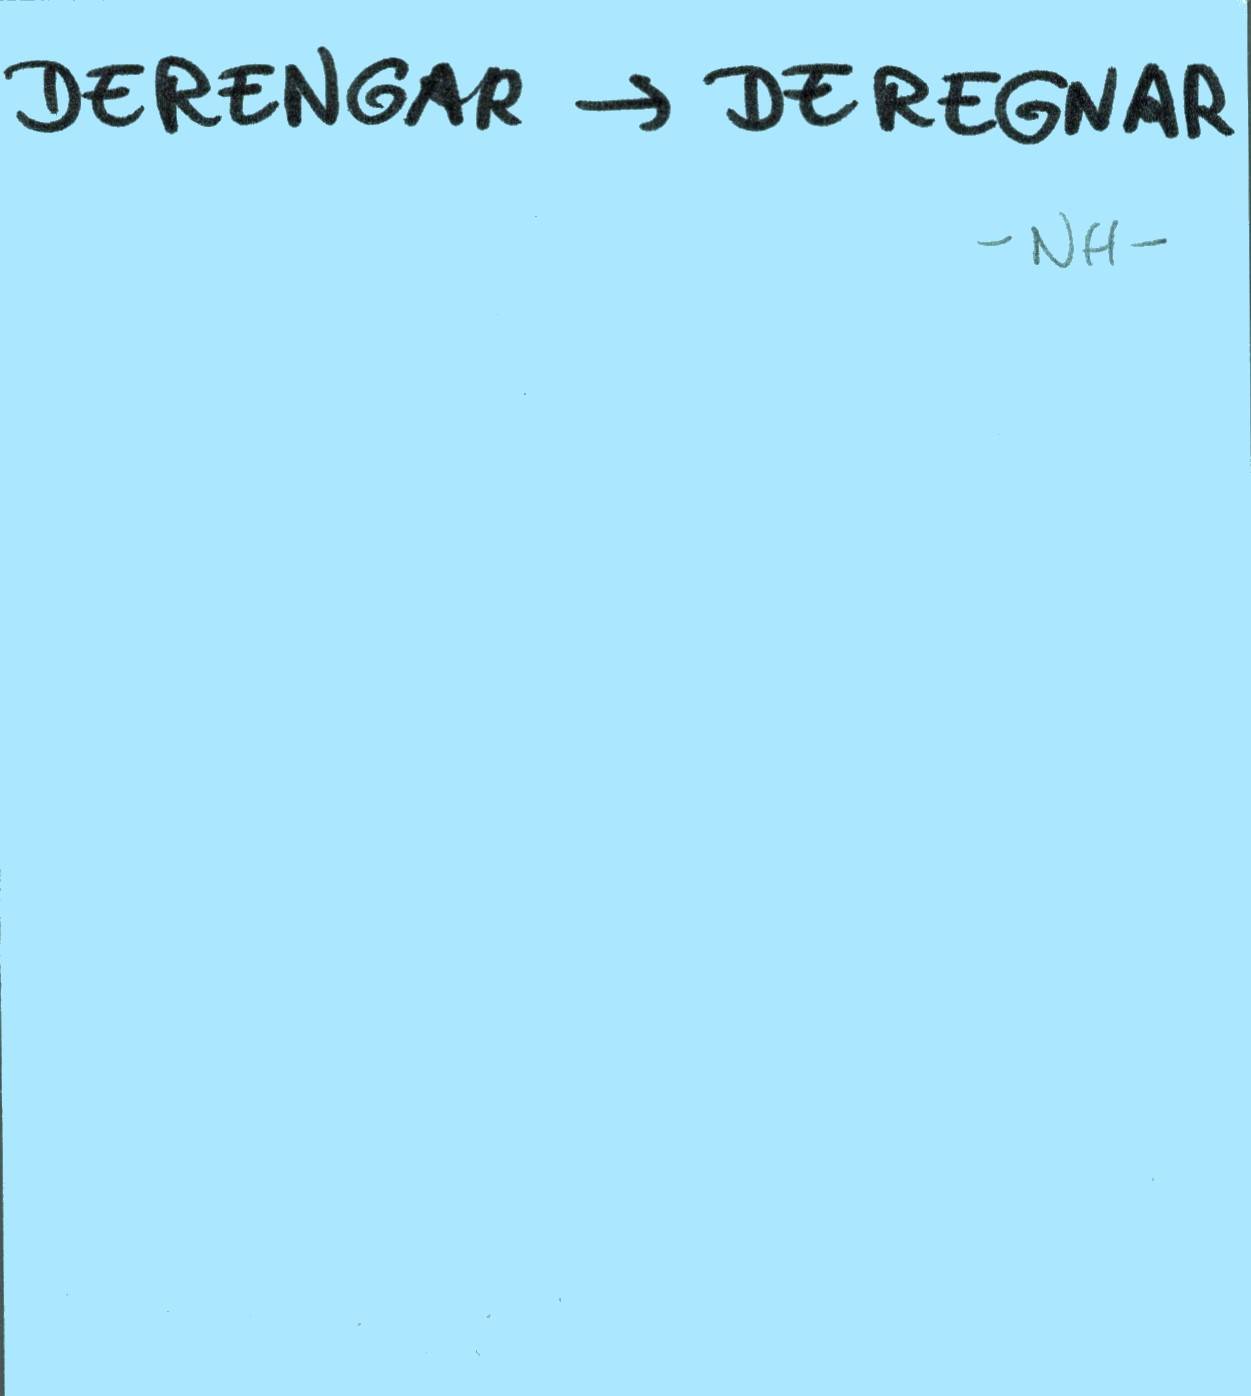 DERENGAR → DEREGNAR
- NH -